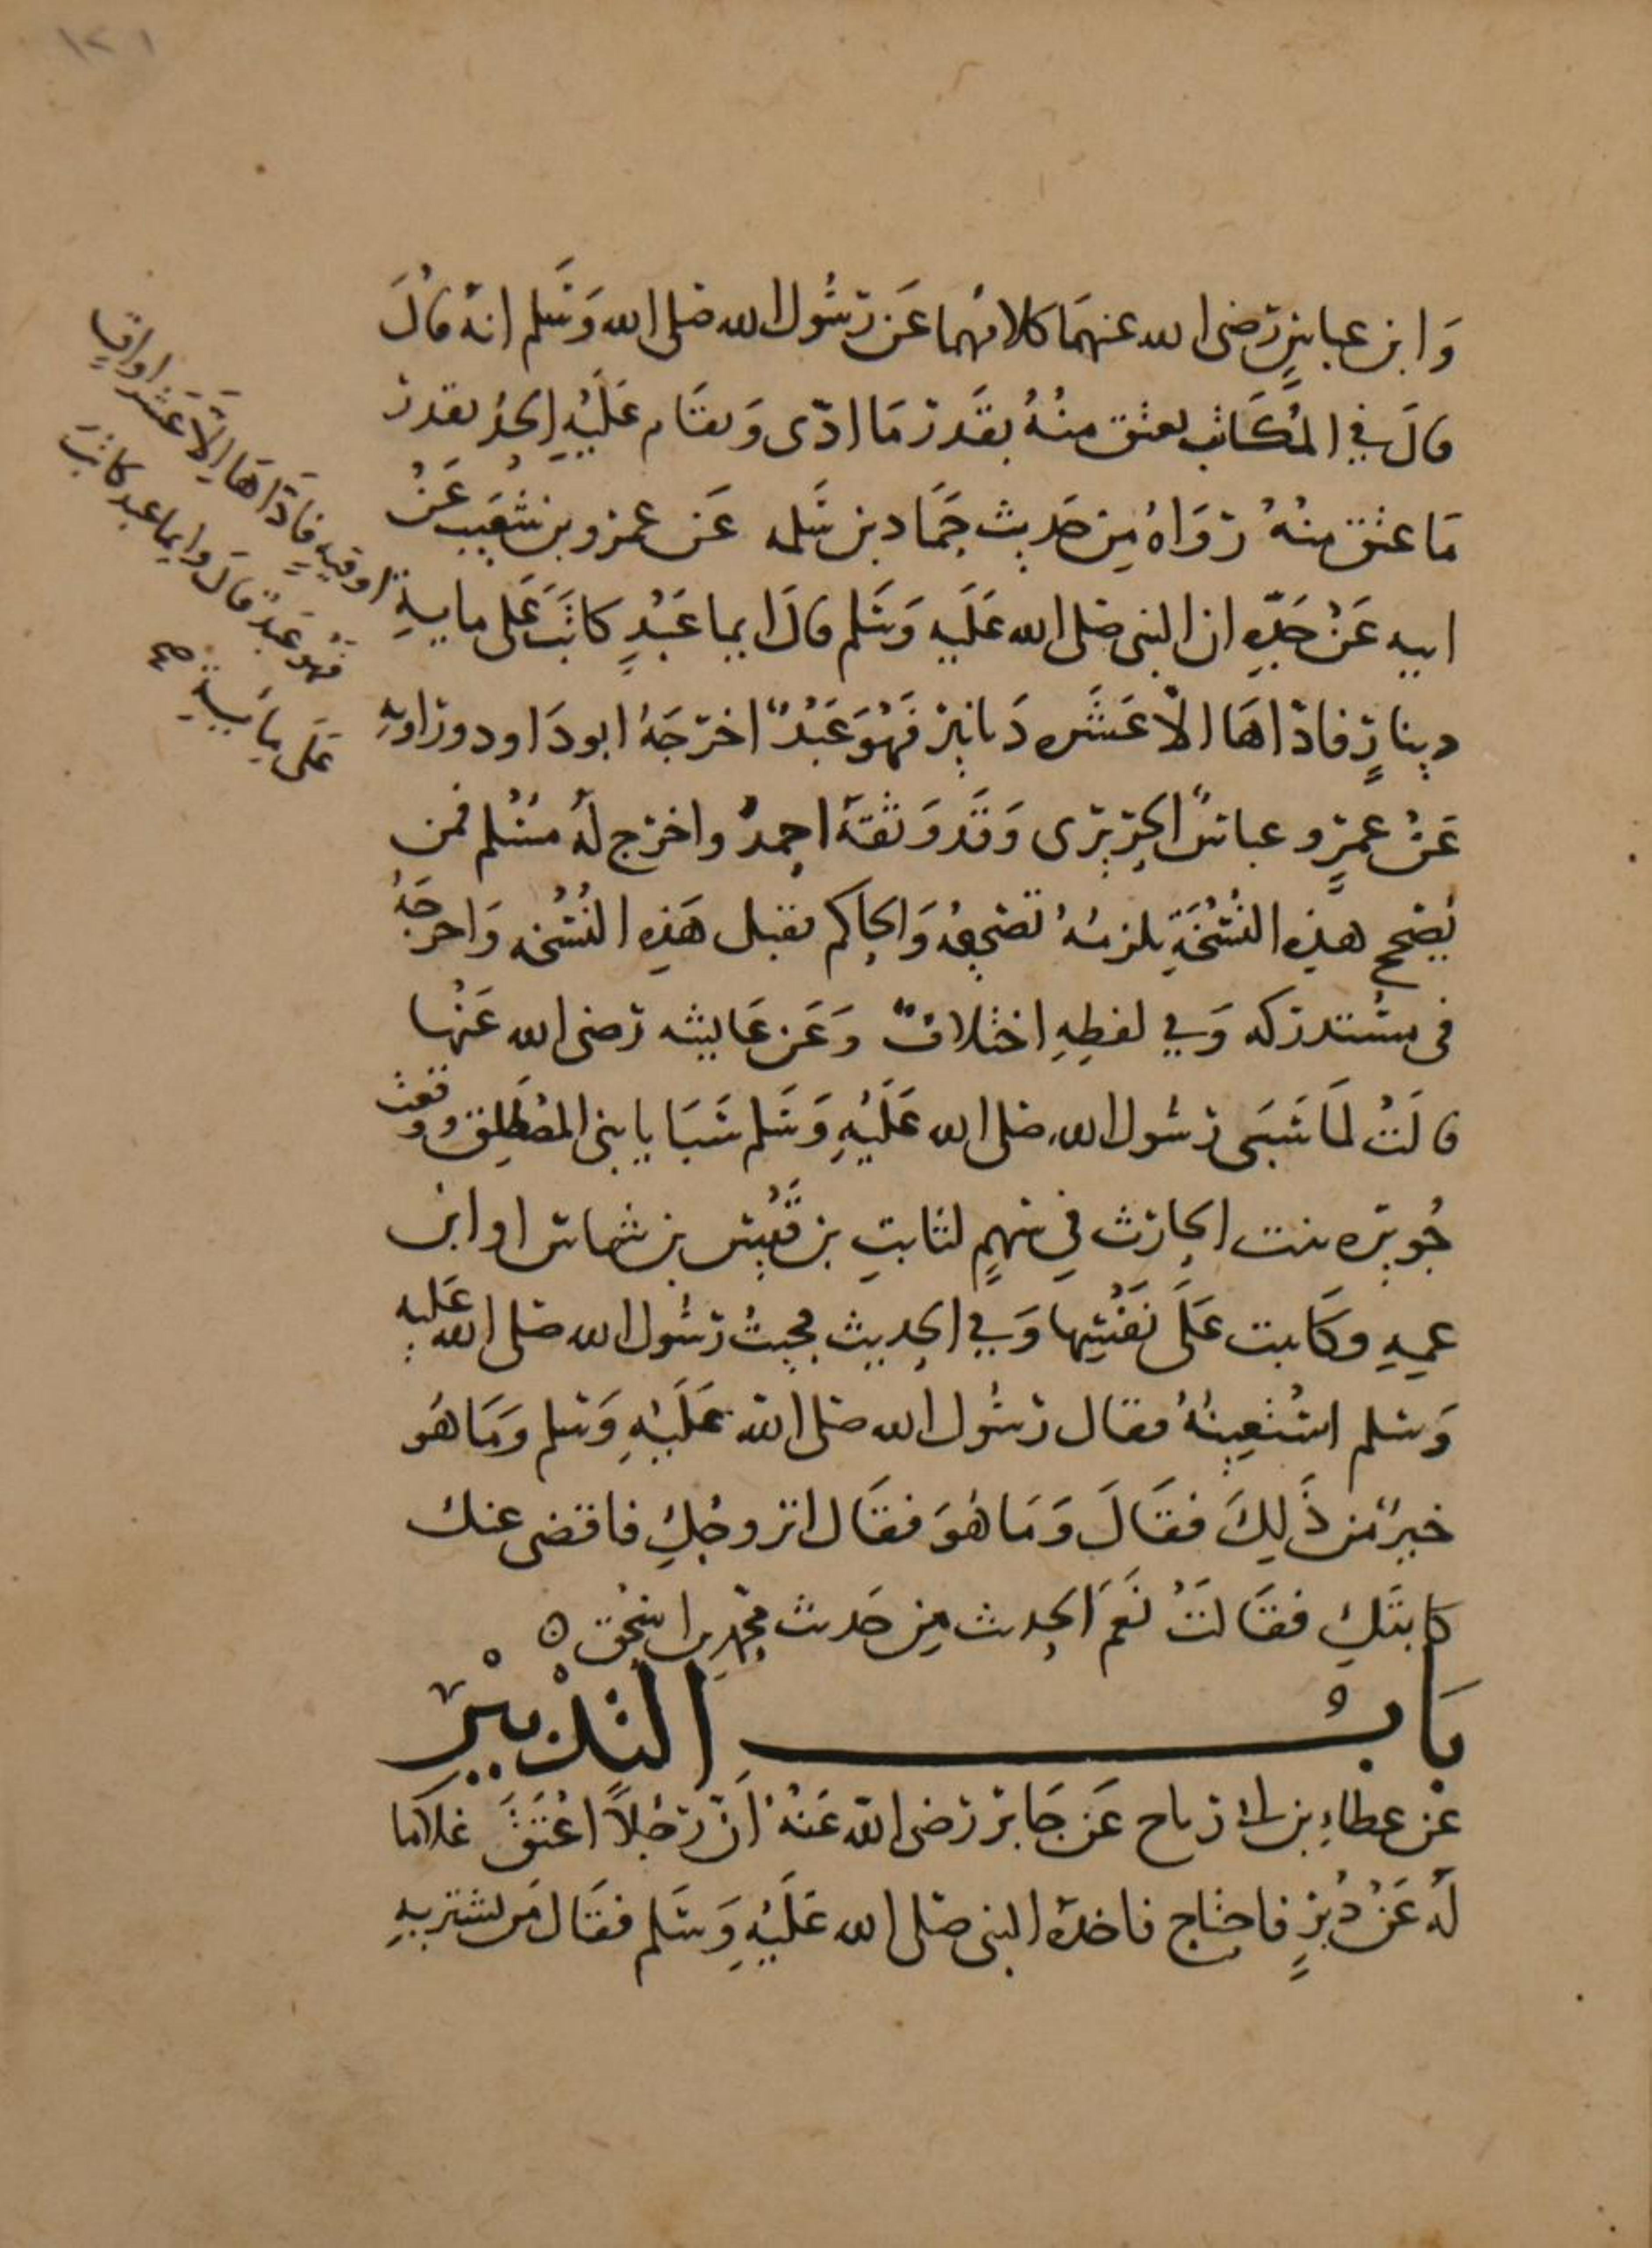 ١٢١
وَابن عباسٍ رَضى الله عنهمَا كلاهُما عَن رَسُول الله صَلى الله وَسَلم انهُ قالَ
قالَ في المُكَاتب يعتق منْهُ بقَدر مَا ادّى وَيقَام عَلَيْهِ الحدُ بقدر
مَا عتق منهُ رَوَاهُ مِن حَديث حَمَّاد بن سَلمه عَن عمرو بن شُعَيب عَنْ
ابيه عَنْ جَدّهِ ان النبى صَلى الله عَلَيه وَسَلم قالَ ايما عَبْدٍ كاتَبَ عَلى مايةِ
اوقيهِ فادَّاهَا الّا عَشر اواقٍ
فهُوَ عَبدٌ قالَ وايما عبد كاتبَ
عَلى مِايَةِ صح
دينارٍ فادّاهَا الّا عَشَره دَنانِيرَ فَهُوَ عَبْدٌ اخرَجَهُ ابو دَاود ورَاويهِ
عَنْ عمرٍو عباسٌ الجرَيرى وَقَد وَثقَهُ احمدُ واخرج لهُ مسْلم فمن
يُصَحح هذِه النُسْخَةِ يلزمُهُ تصَحيحُهُ وَالحاكم يقبل هَذِه النُسْخه وَاخرَجَهُ
فى مسْتدركه وَفي لفظِهِ اختلافٌ وَعَن عَايشه رَضى الله عَنْها
قالَتْ لمَا سَبَى رَسُول الله صَلى الله عَلَيْهِ وَسَلم سَبَايا بنى المصْطَلِق وقعَت
جُويرِه بنت الحارث في سَهمٍ لثابتِ بن قَيْسِ بن شماس او ابن
عمِهِ وكَاتبت عَلَى نَفْسِها وَفي الحديث فجيتُ رَسُول الله صَلى الله عَليه
وَسَلم اسْتعِينُهُ فقال رَسُول الله صَلى الله عَلَيْهِ وَسَلم وَمَا هُو
خيرٌ من ذَلِكَ فقَالَ وَمَا هُوَ فقَال اتزوجُكِ فاقضى عنك
كتابتَكِ فقَالَتْ نَعَم الحديث مِن حَديث مُحمدِ بن اسحٰق ه
بَابُ التدْبيْر
عَن عطاءِ بن ابى رَباح عَن جَابر رَضى الله عَنْهُ انّ رَجُلاً اعْتَقَ غلامًا
لَهُ عَنْ دُبُرٍ فاحتاج فاخذهُ النبى صَلى الله عَلَيْهِ وَسَلم فقَال مَن يشتريهِ